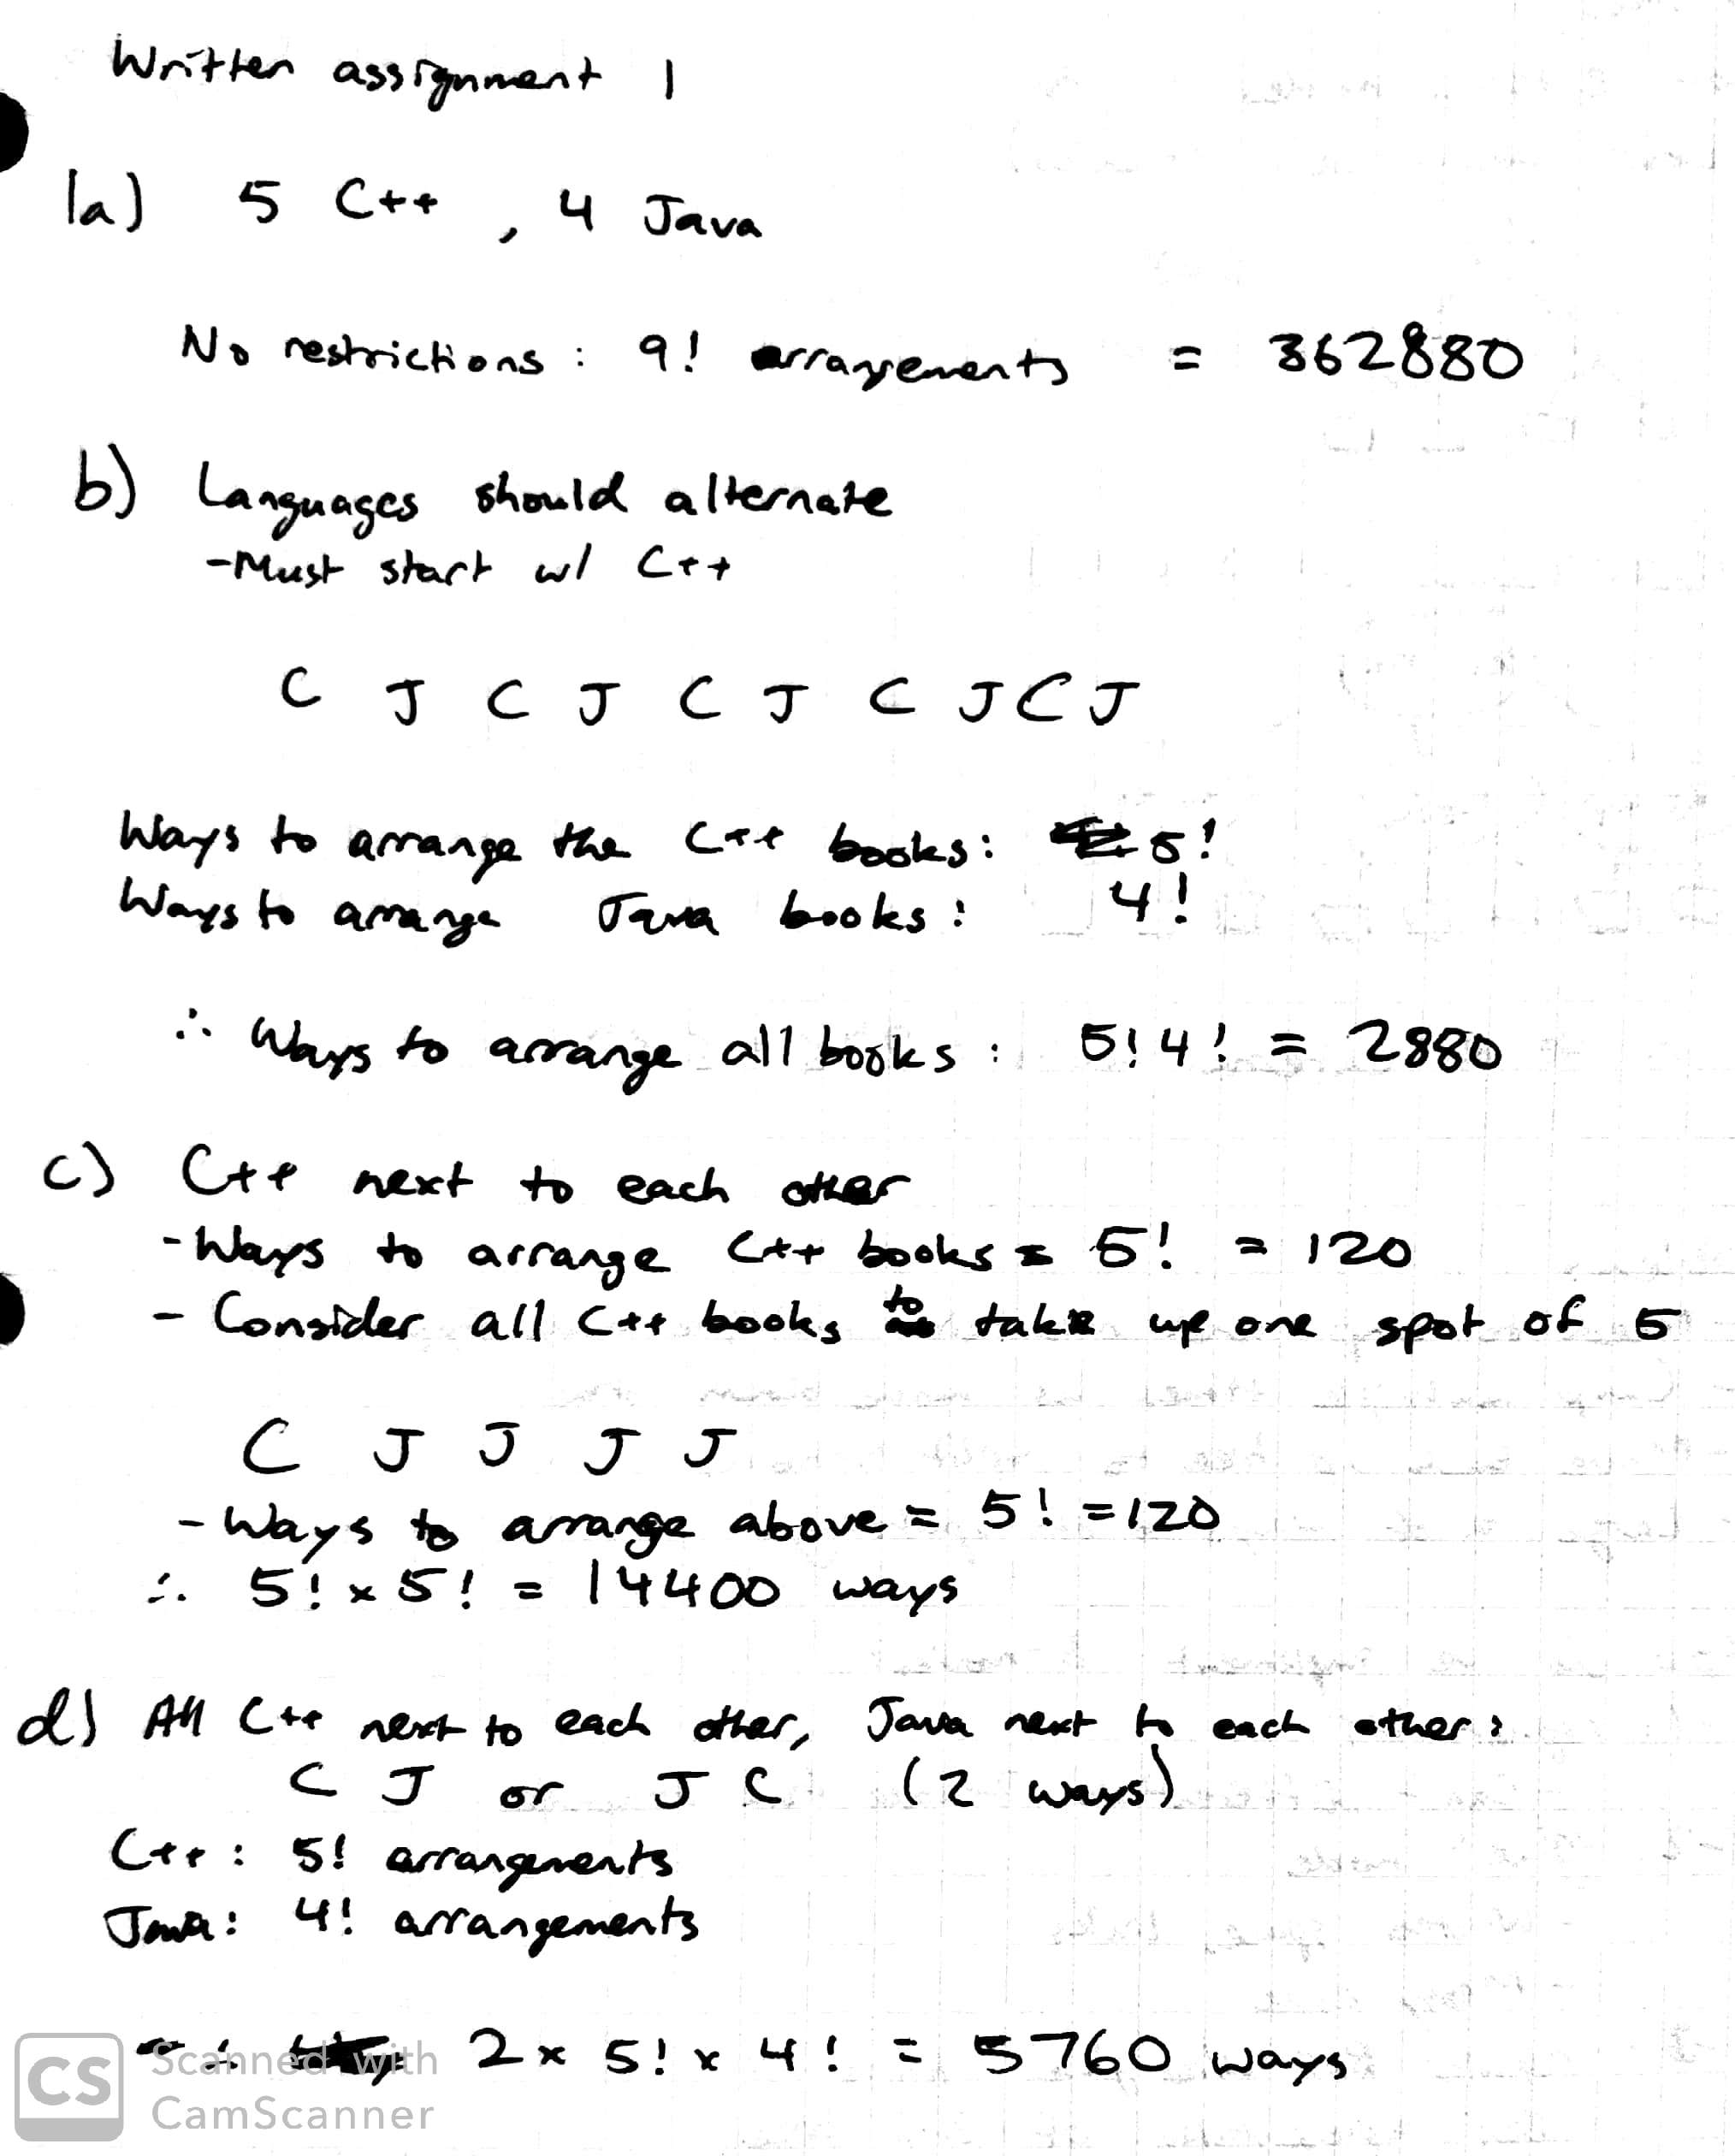 Written assignment 1
1a) 5 C++ , 4 Java
No restrictions : 9! arrangements = 362880
b) Languages should alternate
-Must start w/ C++
C J C J C J C J C J
Ways to arrange the C++ books: 5!
Ways to arrange Java books: 4!
∴ Ways to arrange all books : 5!4! = 2880
c) C++ next to each other
- Ways to arrange C++ books = 5! = 120
- Consider all C++ books to take up one spot of 5
C J J J J
- Ways to arrange above = 5! = 120
∴ 5! x 5! = 14400 ways
d) All C++ next to each other, Java next to each other:
C J or J C (2 ways)
C++ : 5! arrangements
Java: 4! arrangements
∴ 2 x 5! x 4! = 5760 ways
CS Scanned with
CamScanner